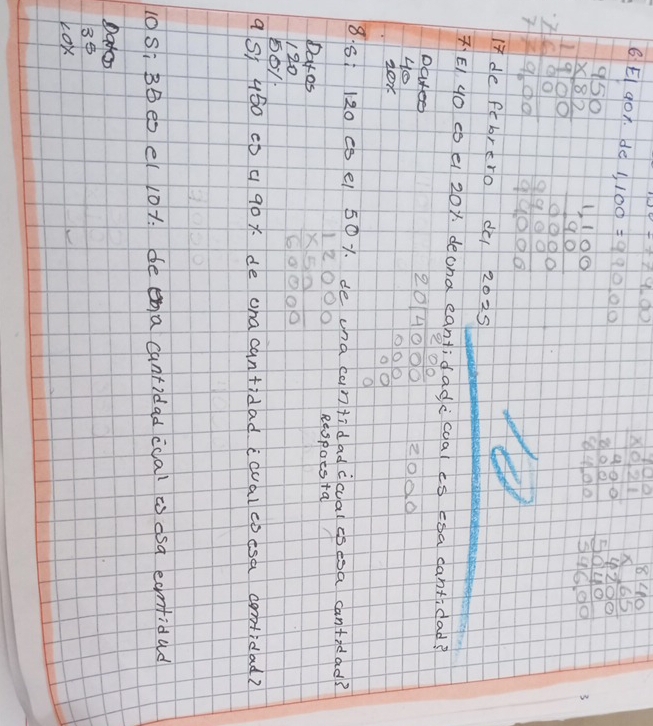 6. El 90% de 1,100 = 990.00
950
X 82
1900
7600
779.00
1,100
90
0000
9900
99000
X 021
400
800
8400
840
X 65
4200
5040
546,00
17 de febrero del 2025
7. El 40 es el 20% de una cantidad ¿cual es esa cantidad?
Datos
40
20%
200
20 4000
000
00
0
2000
8. Si 120 es el 50% de una cantidad ¿cual es esa cantidad?
Datos
120
50%
12000
X 50
60000
Respuesta
9 Si 450 es el 90% de una cantidad ¿cual es esa cantidad?
10 Si 35 es el 10% de una cantidad ¿cual es esa cantidad
Datos
35
10%